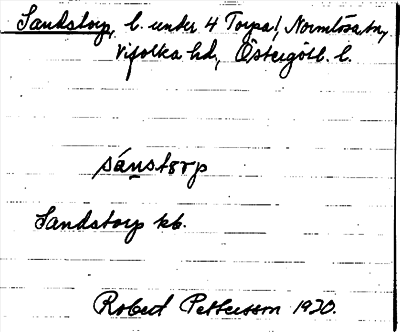 Sandstorp, l. under 4 Torpa!, Normlösa sn,
Vifolka hd, Östergötl. l.
sánstorp
Sandstorp kb.
Robert Pettersson 1930.